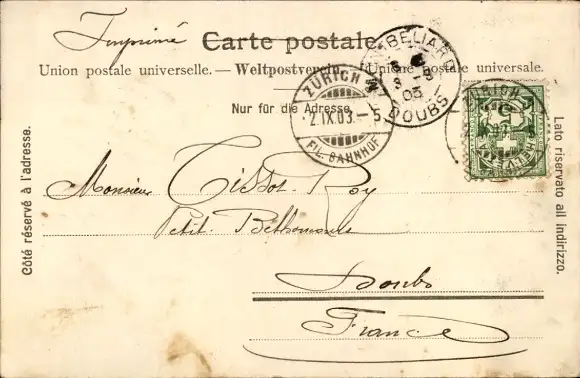 Imprimé
Carte postale.
Union postale universelle. — Weltpostverein — Unione postale universale.
Nur für die Adresse.
ZÜRICH
2.IX.03.-5
FIL. BAHNHOF
MONTBELIARD
03
DOUBS
ZÜRICH
HELVETIA
Côté réservé à l'adresse.
Lato riservato all indirizzo.
Monsieur Tissot-Roy
Petit
Doubs
France